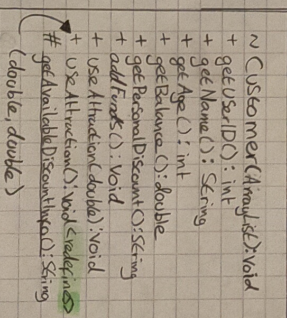 ~ Customer(ArrayList):void
+ getUserID(): int
+ getName(): String
+ getAge(): int
+ getBalance():double
+ getPersonalDiscount():String
+ addFunds(): Void
+ useAttraction(double):Void
+ useAttraction():Void <redefines>
# getAvailableDiscountInfo(): String
(double, double)